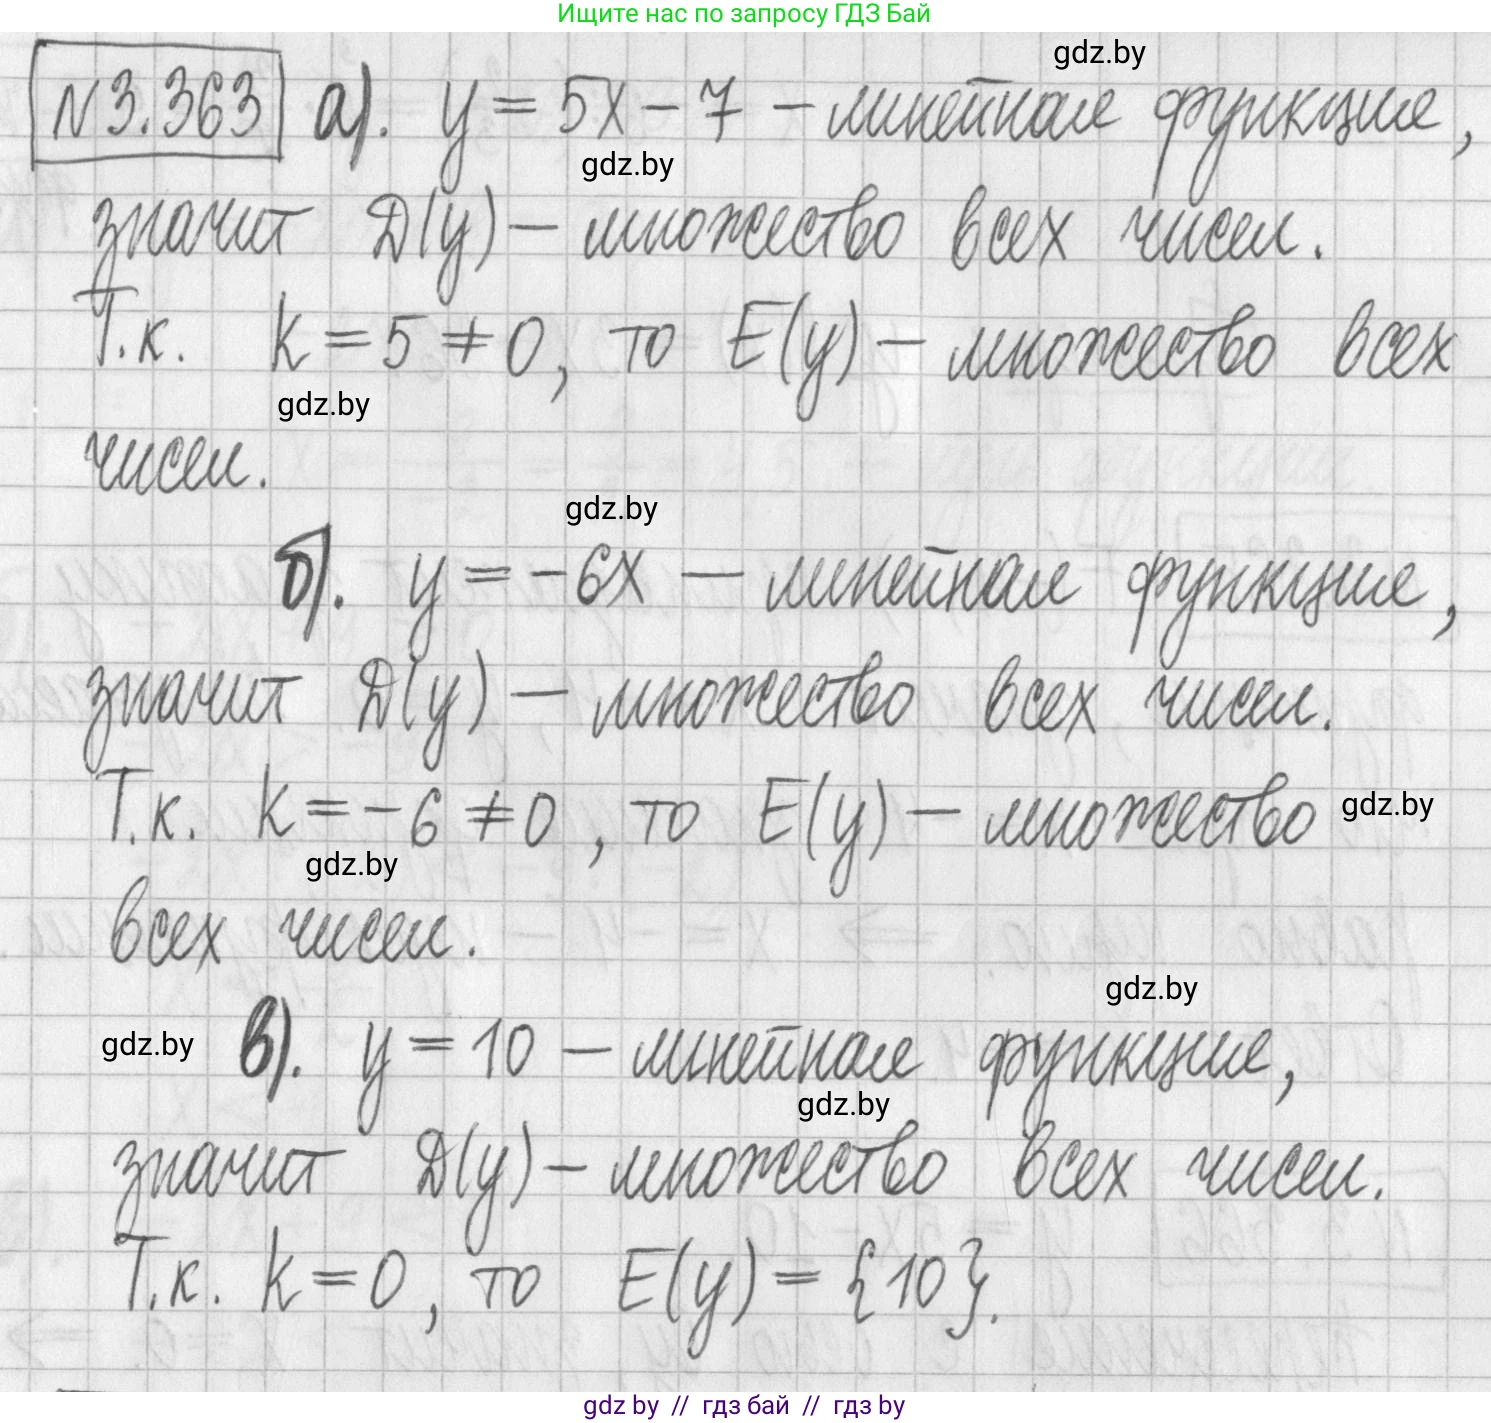 Ищите нас по запросу ГДЗ Бай
gdz.by
№3.363 а). y = 5x - 7 - линейная функция,
gdz.by
значит D(y) - множество всех чисел.
Т.к. k = 5 ≠ 0, то E(y) - множество всех
gdz.by
чисел.
gdz.by
б). y = -6x - линейная функция,
значит D(y) - множество всех чисел.
Т.к. k = -6 ≠ 0, то E(y) - множество gdz.by
gdz.by
всех чисел.
gdz.by
gdz.by в). y = 10 - линейная функция,
gdz.by
значит D(y) - множество всех чисел.
Т.к. k = 0, то E(y) = {10}.
gdz.by // гдз бай // гдз by